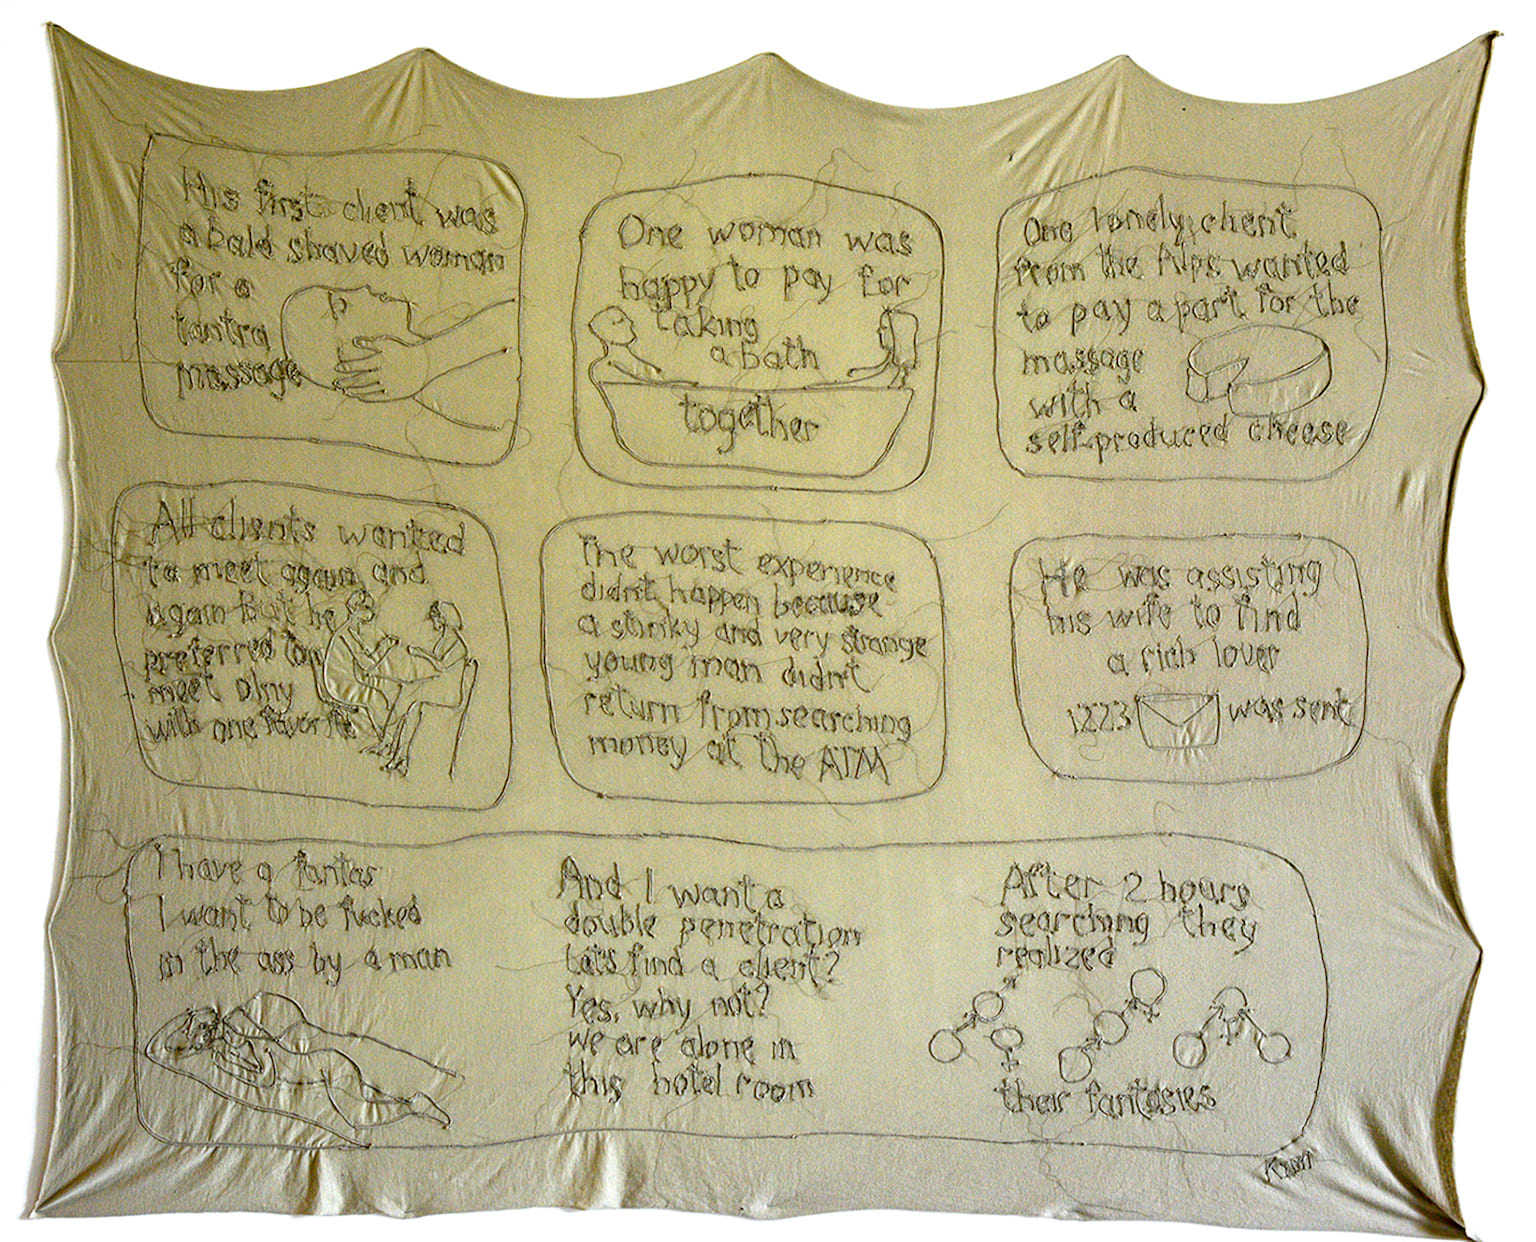 His first client was
a bald shaved woman
for a
tantra
massage
One woman was
happy to pay for
taking
a bath
together
One lonely client
from the Alps wanted
to pay a part for the
massage
with a
self-produced cheese
All clients wanted
to meet again and
again But he
preferred to
meet olny
with one favorite
The worst experience
didn't happen because
a stinky and very strange
young man didn't
return from searching
money at the ATM
He was assisting
his wife to find
a rich lover
1223 was sent
I have a fantas
I want to be fucked
in the ass by a man
And I want a
double penetration
Let's find a client?
Yes, why not?
we are alone in
this hotel room
After 2 hours
searching they
realized
their fantasies